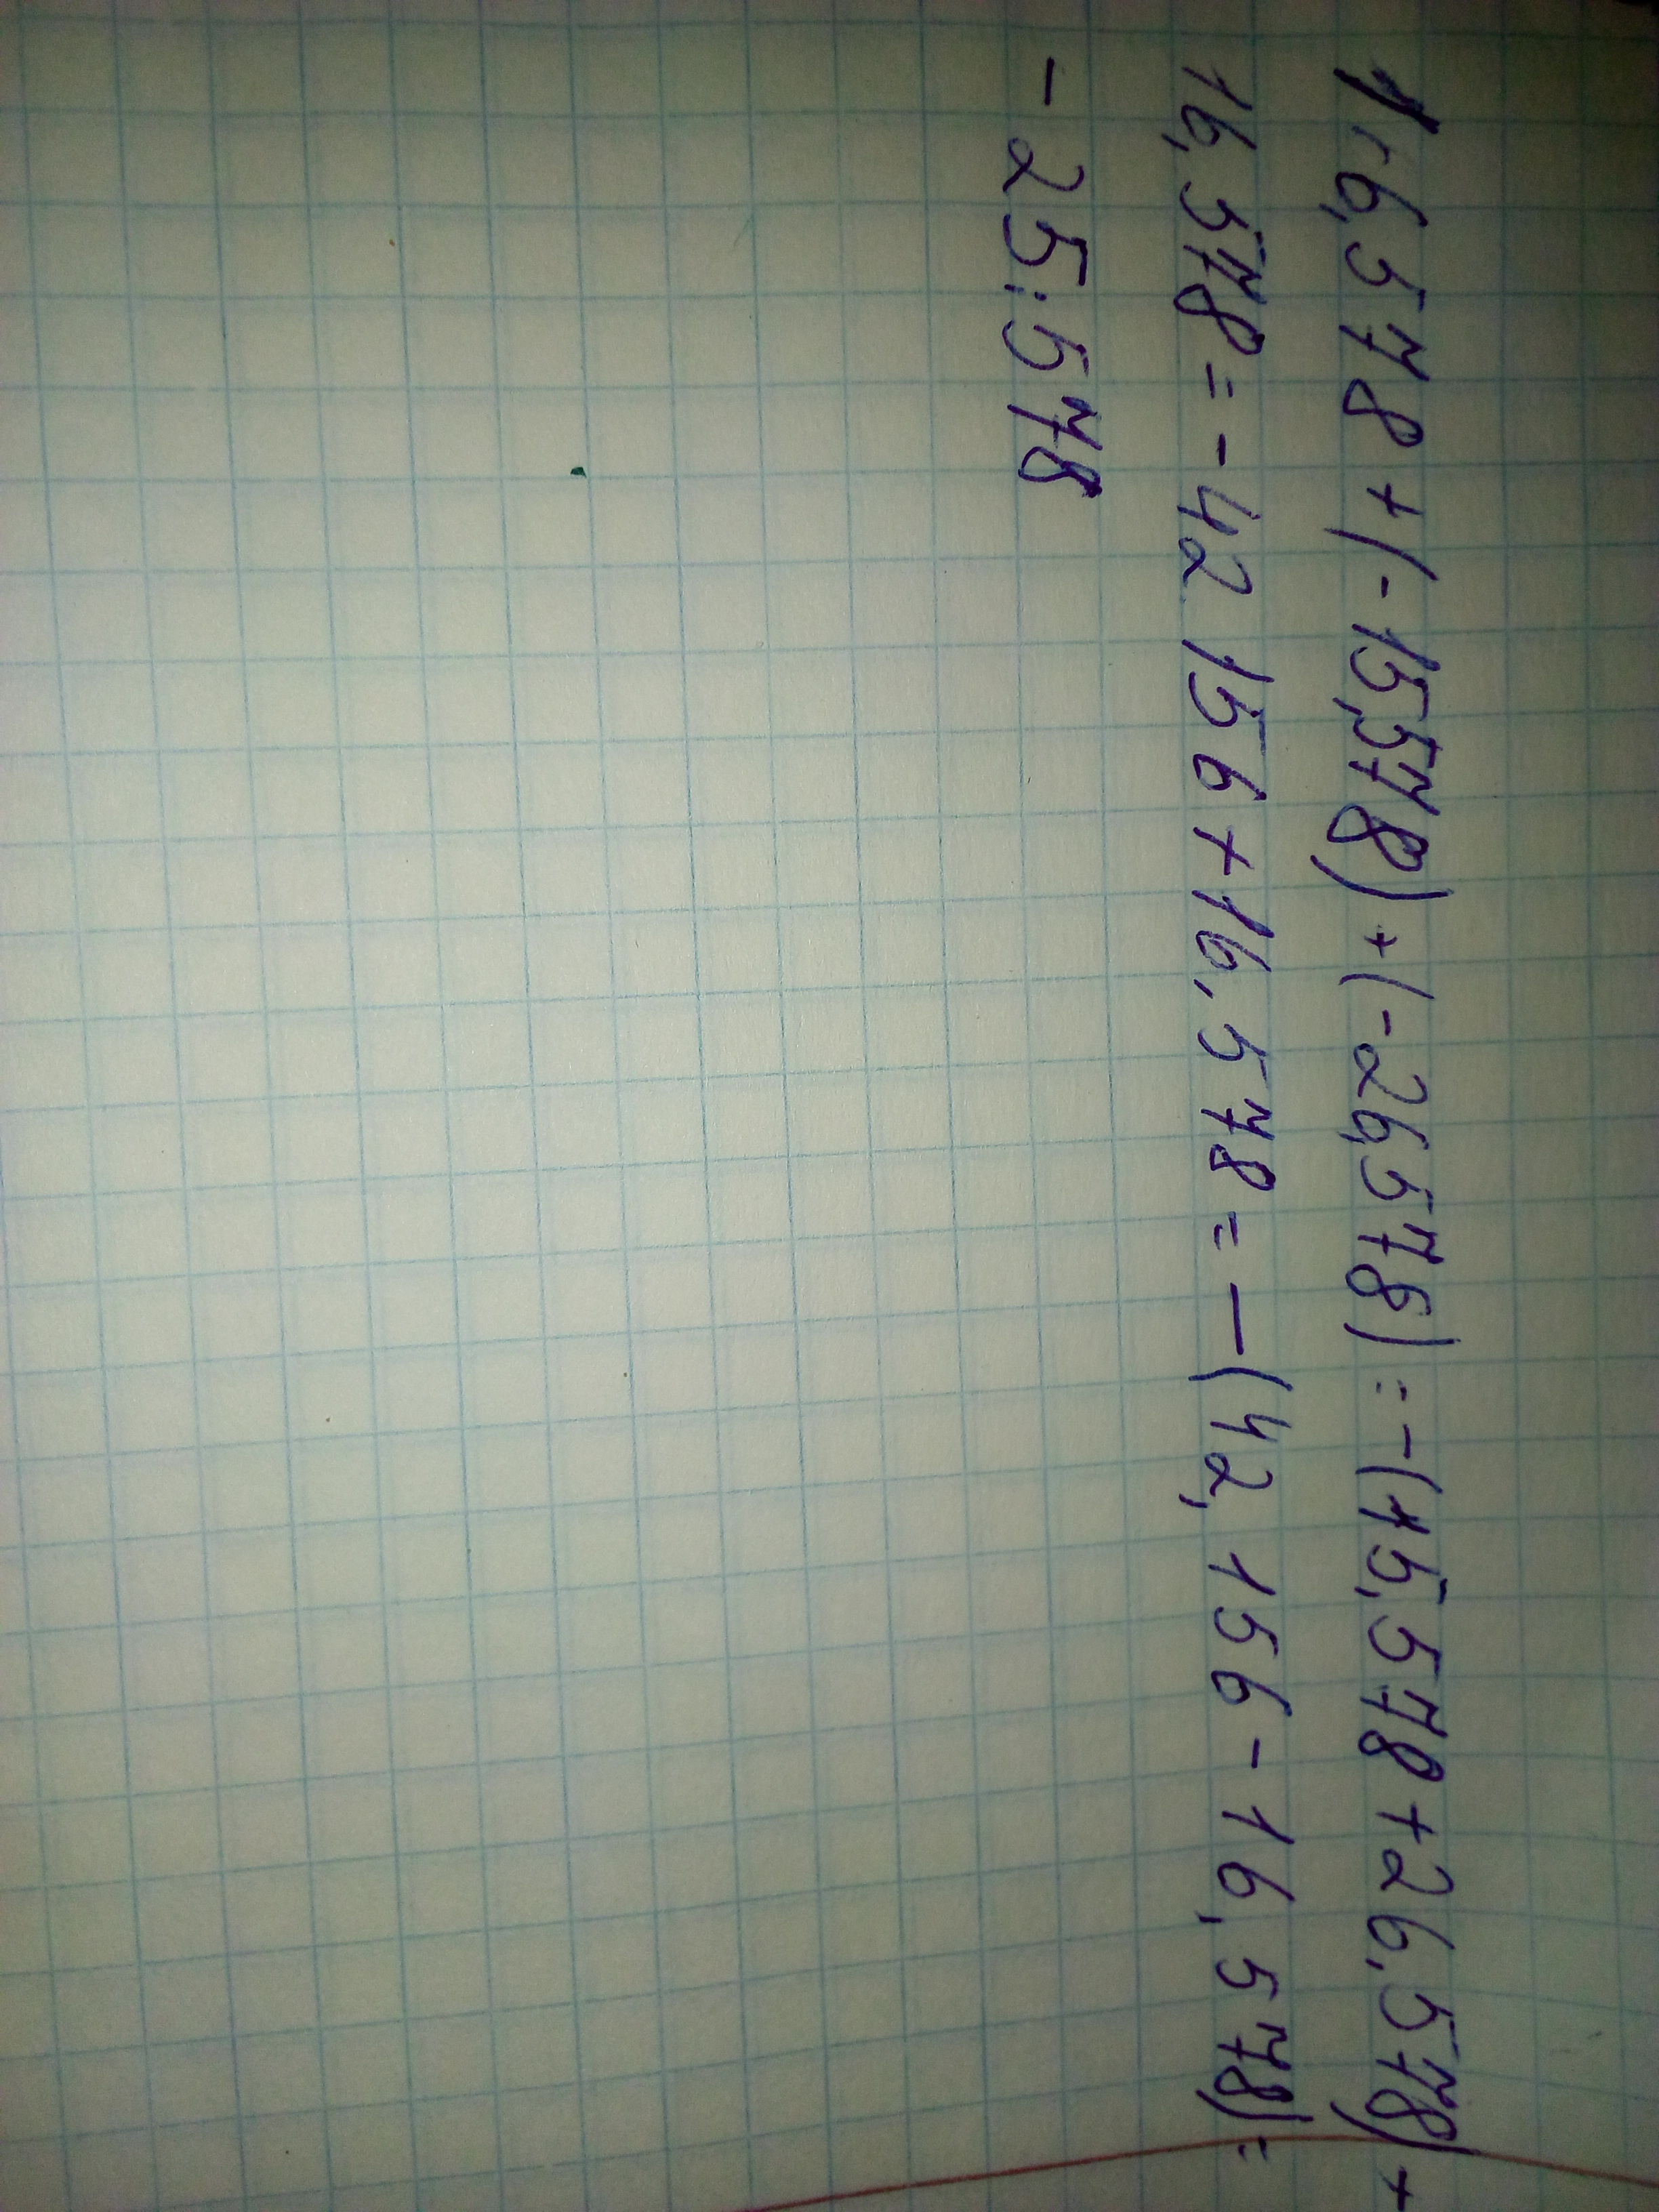 16,578 + (-15,578) + (-26,578) = -(15,578 + 26,578) +
16,578 = -42 156 + 16,578 = -(42,156 - 16,578) =
- 25:578